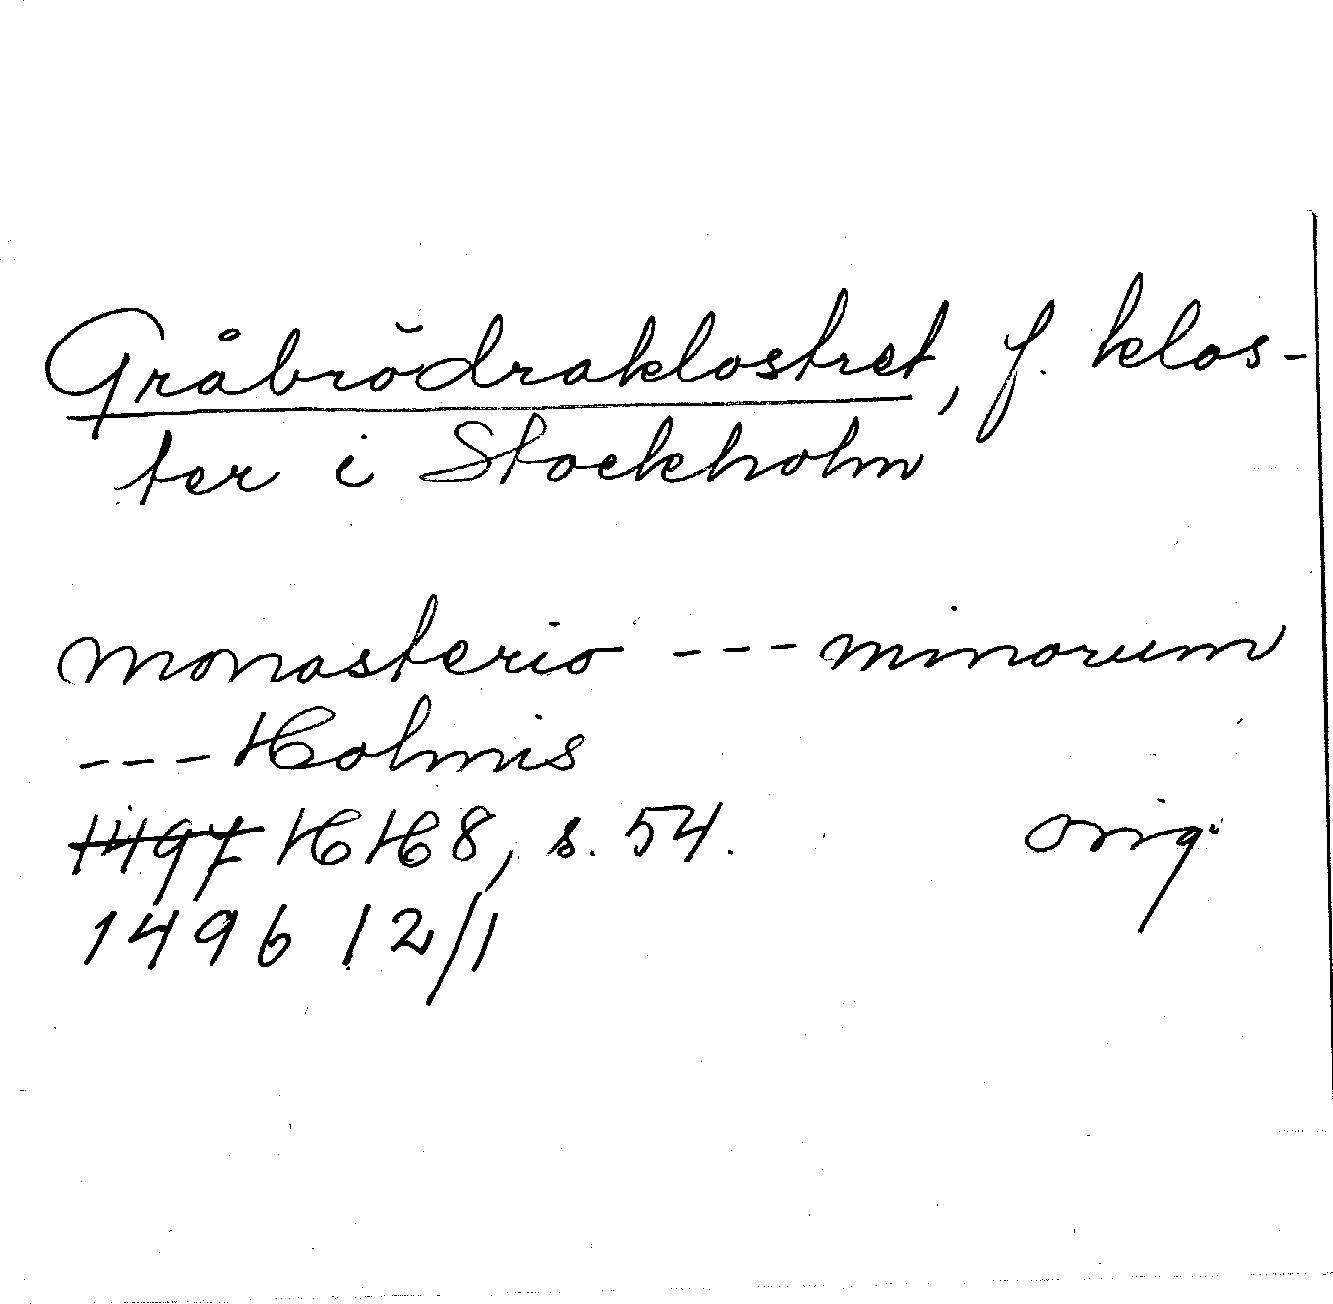 Gråbrödraklostret, f. klos-
ter i Stockholm
monasterio --- minorum
--- Holmis
1497 HH8, s. 54. orig.
1496 12/1